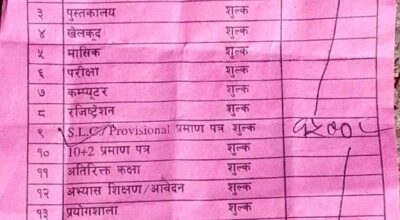 ३ पुस्तकालय शुल्क
४ खेलकूद शुल्क
५ मासिक शुल्क
६ परीक्षा शुल्क
७ कम्प्युटर शुल्क
८ रजिष्ट्रेशन शुल्क
९ S.L.C./Provisional प्रमाण पत्र शुल्क
१० 10+2 प्रमाण पत्र शुल्क
११ अतिरिक्त कक्षा शुल्क
१२ अभ्यास शिक्षण/आवेदन शुल्क
१३ प्रयोगशाला शुल्क